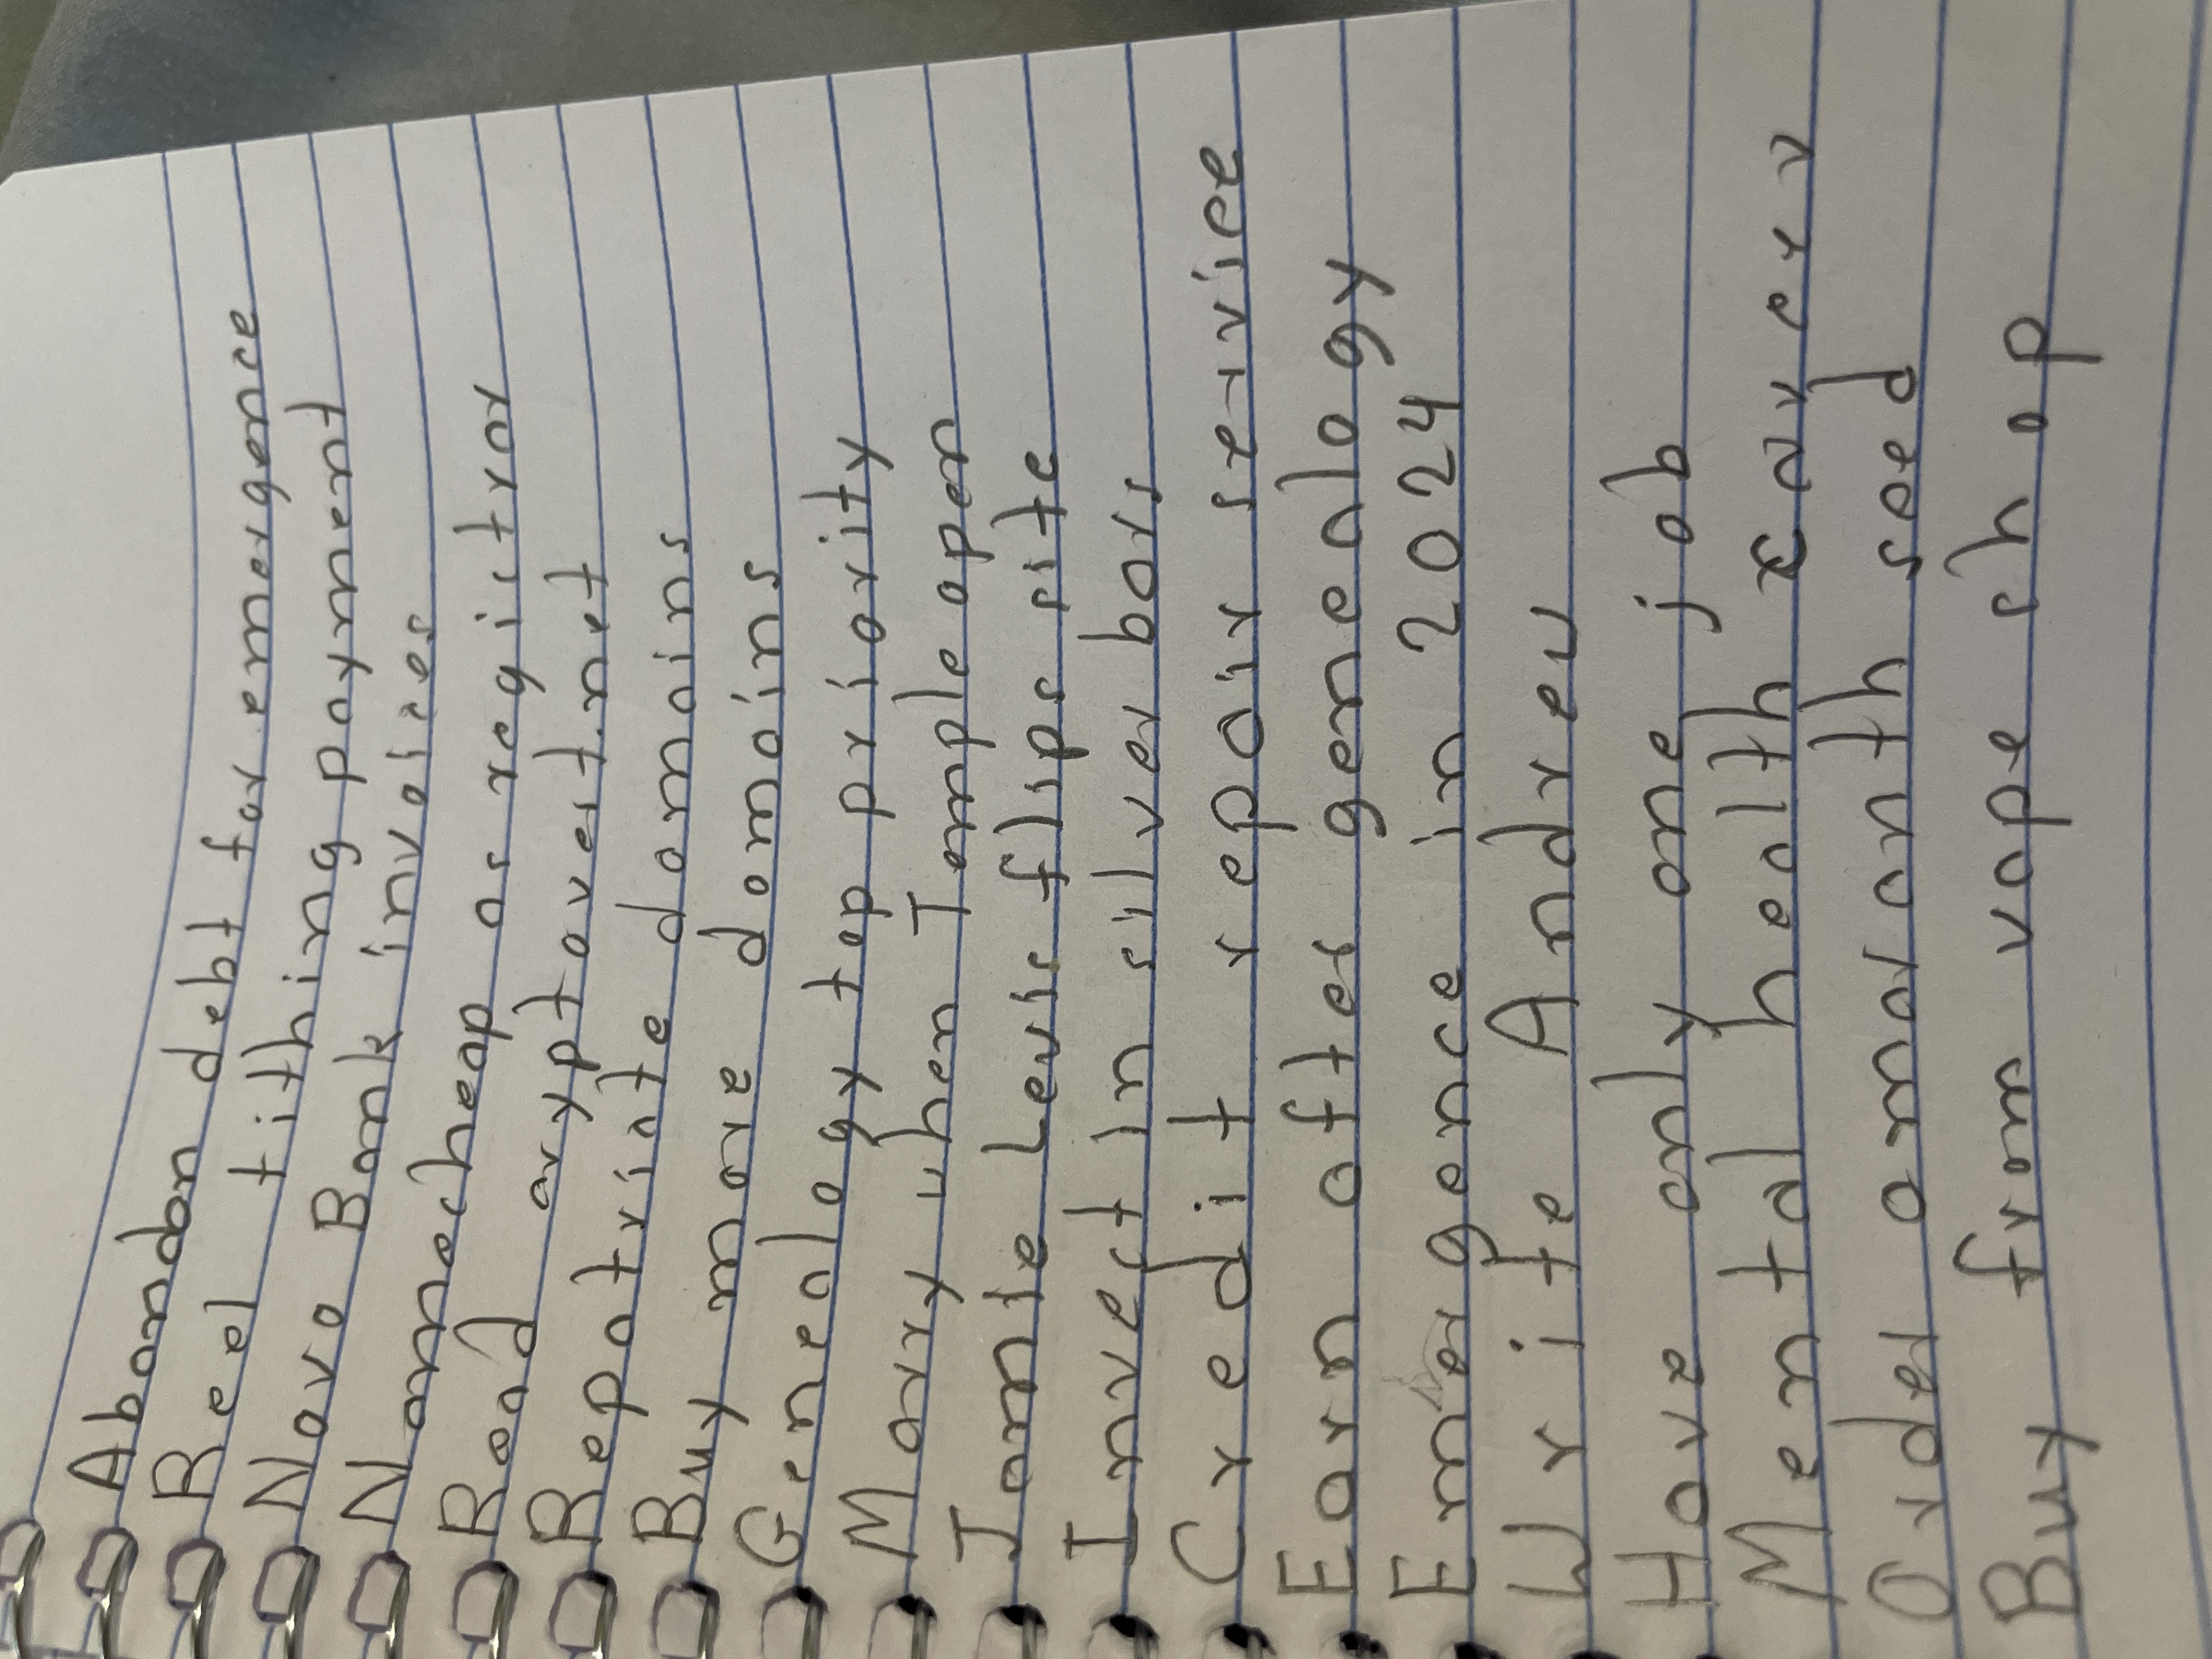 Abandon debt for emergence
Reel tithing payment
Novo Bank invoices
Namecheap as registrar
Read cryptovest.net
Repatriate domains
Buy more domains
Genealogy top priority
Marry when Temple open
Jamie Levis flips site
Invest in silver bars
Credit repair service
Earn after genealogy
Emergence in 2024
Write Andrew
Have only one job
Mental health career
Order amaranth seed
Buy from vape shop